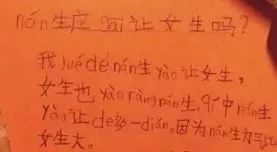 nán生应gāi让女生吗?
我jué dé nán生yào让女生,
女生也yào ràng nán生,行中nán生
yào让de多一diǎn。因为nán生力三比
女生大。